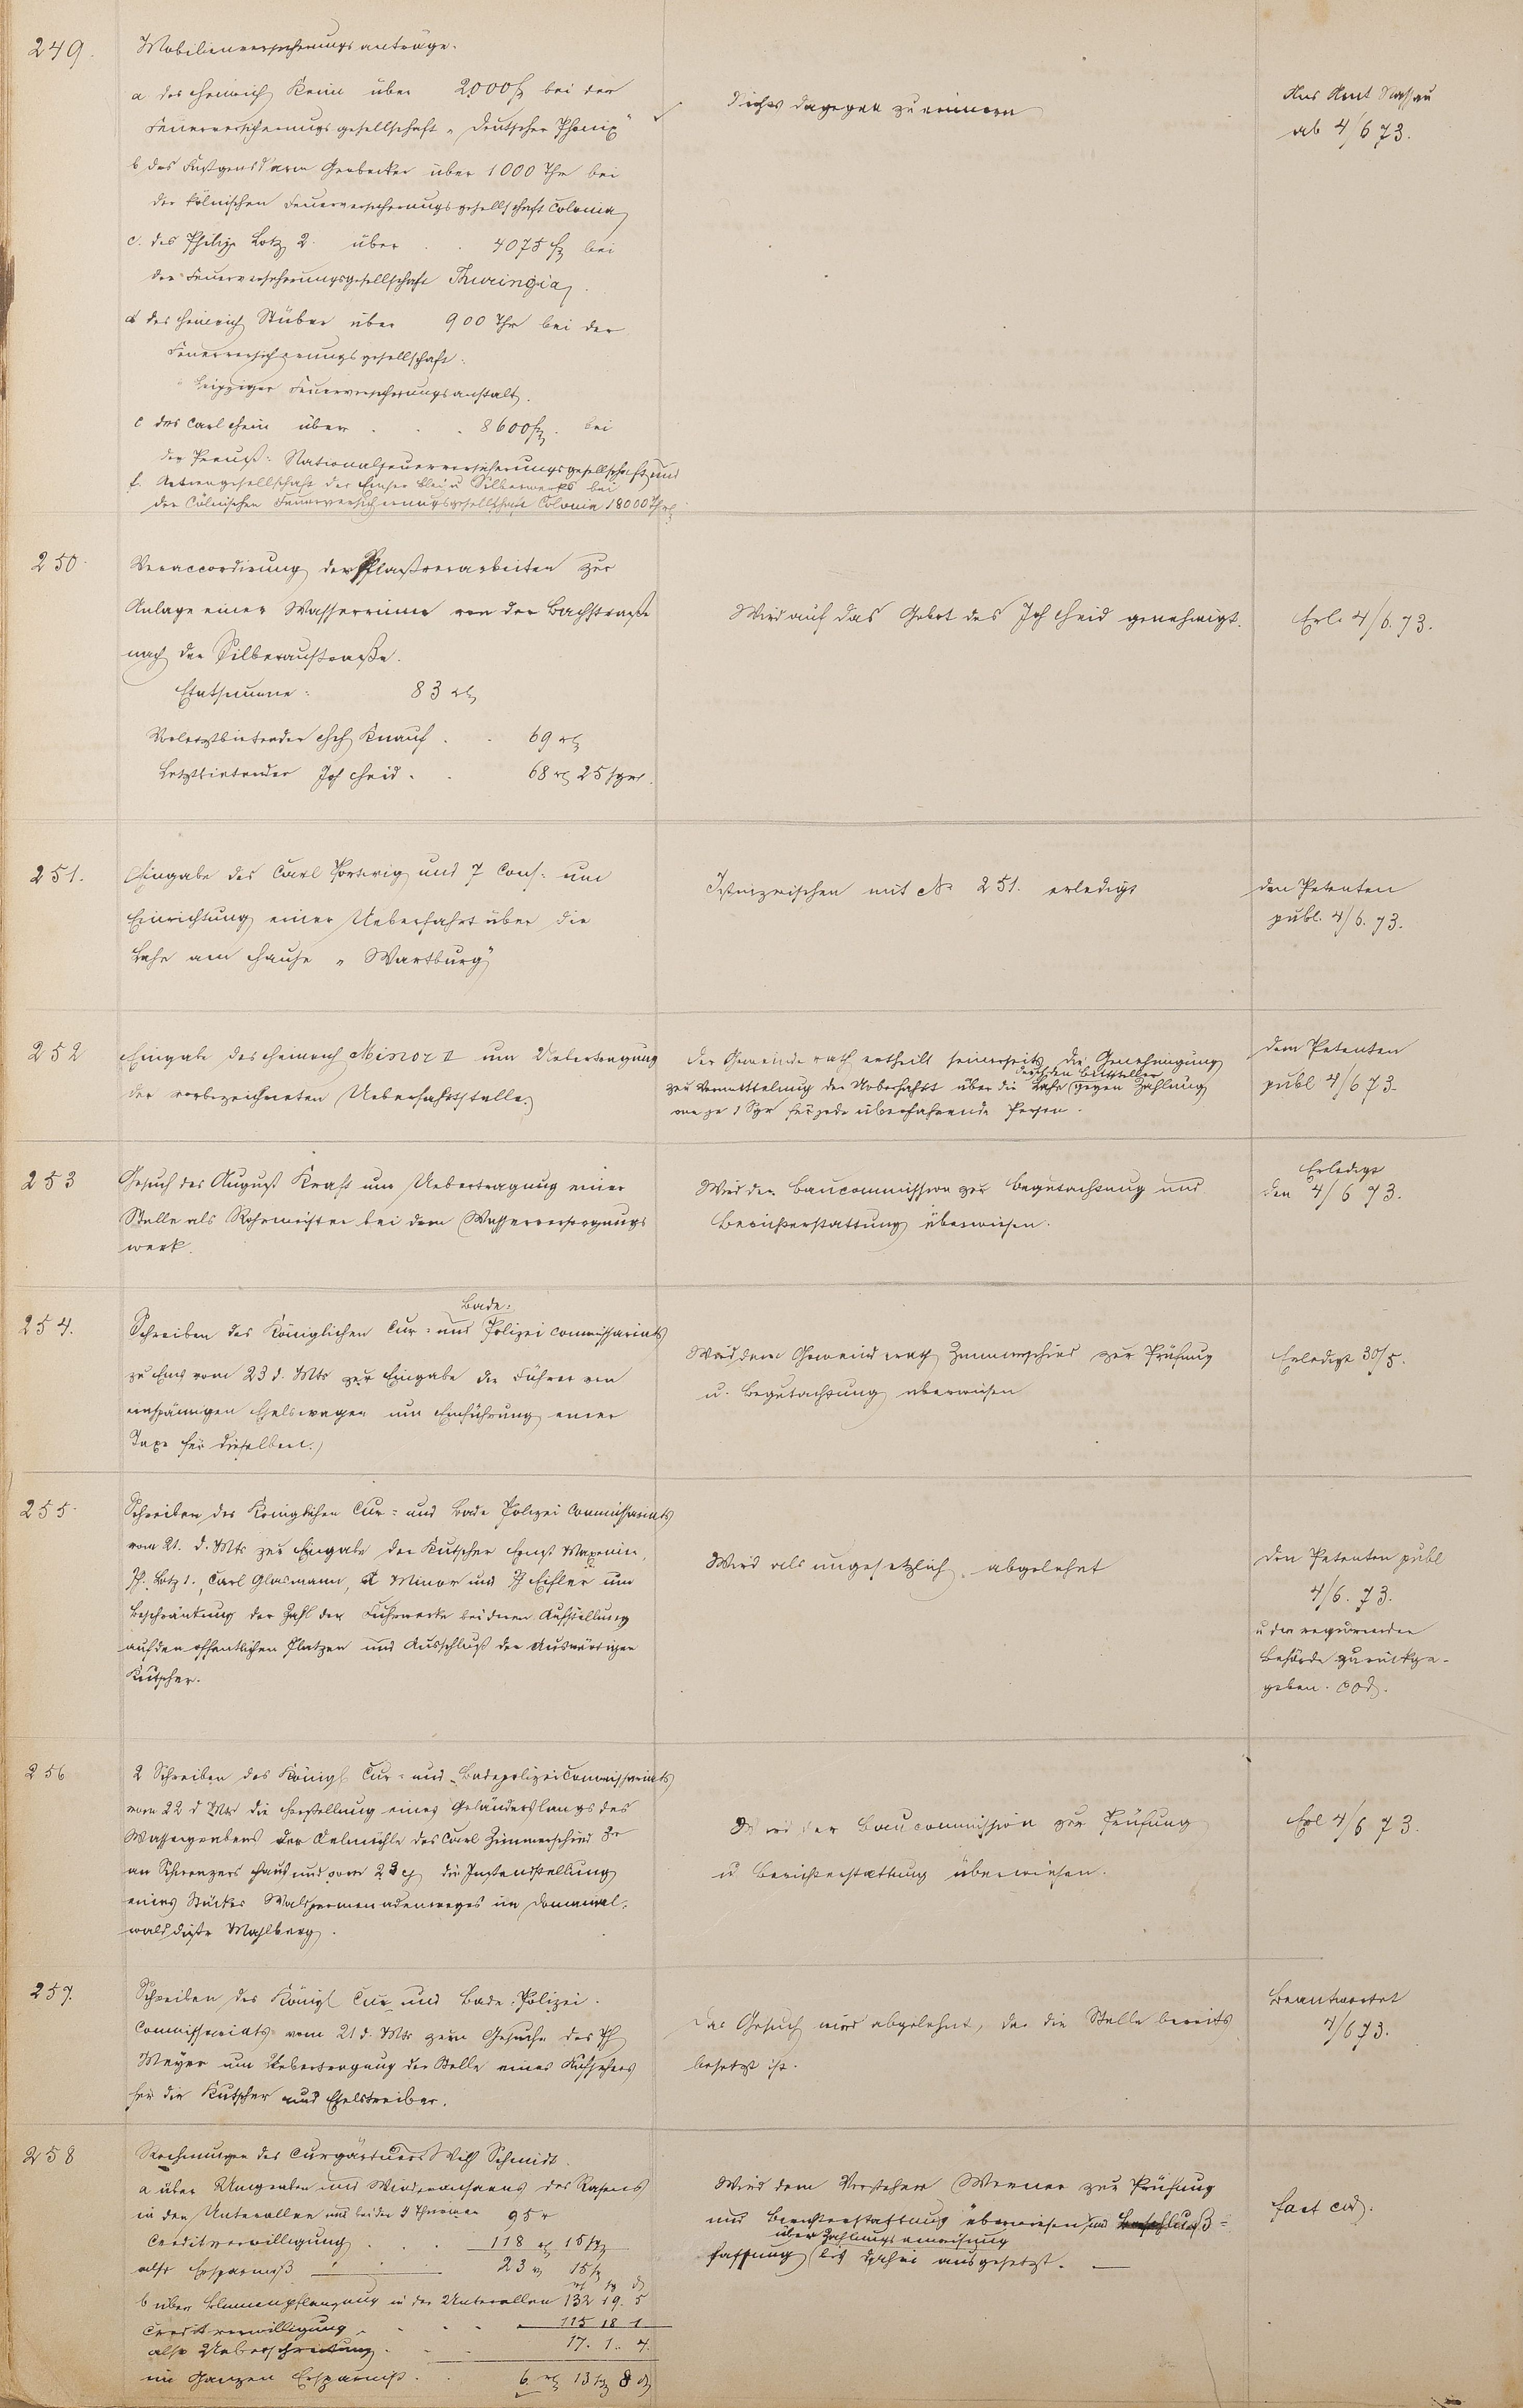 249.
Mobilienversicherungsanträge.
a des Heinrich Keim über 2000 fl bei der
Feuerversicherungsgesellschaft „Deutscher Phönix"
b des Fußgendarm Gerbecker über 1000 Thr bei
der kölnischen Feuerversicherungsgesellschaft Colonia
c. des Philipp Lotz 2. über . . 4075 fl bei
der Feuerversicherungsgesellschaft Thuringia
d des Heinrich Stüber über 900 Thr bei der
Feuerversicherungsgesellschaft:
Leipziger Feuerversicherungsanstalt.
e des Carl Hein über . . . 8600 fl. bei
der Preuß: Nationalfeuerversicherungsgesellschaft und
f. Actiengesellschaft des Emser Blei u Silberwerks bei
der Cölnischen Feuerversicherungsgesellschaft Colonia 18000 Thr
Nichts dagegen zu erinnern
Ans Amt Nassau
ab 4/6 73.
250.
Veraccordirung der Pflasterarbeiten zur
Anlage einer Wasserrinne von der Bachstraße
nach der Silberaustraße.
Etatsumme: 83 rh
Vorletztbietender Knauf . . 69 rh
Letztbietender Joh Heid . . 68 rh 25 sgr.
Wird auf das Gebot des Joh Heid genehmigt.
Erl. 4/6. 73.
251.
Eingabe des Carl und 7 Cons: um
Einrichtung einer Ueberfahrt über die
Lahn am Hause „Wartburg"
Ist inzwischen mit No 251. erledigt
den Petenten
publ. 4/6. 73.
252
Eingabe des Heinrich Minor II um Uebertragung
der vorbezeichneten Ueberfahrtsstelle.
Der Gemeinderath ertheilt seinerseits die Genehmigung
durch den Bittsteller
zur Vermittelung der Ueberfahrt über die Lahn gegen Zahlung
von je 1 Sgr für jede überfahrende Person.
dem Petenten
publ 4/6 73.
253
Gesuch des August Kraft um Uebertragung einer
Stelle als Rohrmeister bei dem Wasserversorgungs
werk.
Wird der Baucommission zur Begutachtung und
Berichterstattung überwiesen.
Erledigt
den 4/6 73.
254.
Bade:
Schreiben des Königlichen Cur- und Polizeicommissariats
zu Ems vom 23 d. Mts zur Eingabe der Führer von
einspännigen Eselswagen um Einführung einer
Taxe für dieselben.
Wird dem Gemeinderath Zimmerschied zur Prüfung
u. Begutachtung überwiesen
Erledigt 30/5.
255.
Schreiben des Königlichen Cur- und Bade Polizei Commissariats
vom 21. d. Mts zur Eingabe der Kutscher Ernst
Ph. Lotz 1., Carl Glasmann, A Minor und Ph Eisler um
Beschränkung der Zahl der Fuhrwerke bei deren Aufstellung
auf den öffentlichen Plätzen und Ausschluß der Auswärtigen
Kutscher.
Wird als ungesetzlich abgelehnt
den Petenten publ
4/6. 73.
u der requirirenden
Behörde zurückge-
geben. eod.
256
2 Schreiben des Königl Cur- und Badepolizeicommissariats
vom 22 d Mts die Herstellung eines Geländers längs des
Wassergrabens der Oelmühle des Carl Zimmerschied
an Schwenzers Haus und vom 23 ej die Instandstellung
eines Stückes Waldpromenadenweges im Domanial-
wald Distr Mahlberg.
Wird der Baucommission zur Prüfung
u Berichterstattung überwiesen.
Erl 4/6 73.
257.
Schreiben des Königl Cur und Bade-Polizei.
Commissariats vom 21 d. Mts zum Gesuche des Ph
Meyer um Uebertragung der Stelle eines Aufsehers
für die Kutscher und Eselstreiber.
Das Gesuch wird abgelehnt, da die Stelle bereits
besetzt ist.
Beantwortet
4/6 73.
258
Rechnungen des Curgärtners Wilh Schmidt.
a über Umgraben und des Rasens
in den Unteralleen und bei den 4 Thürmen 95 r
Creditverwilligung . . . 118 rh 15 sg
also Ersparniß 23 rh 15 sg
rh sg d
b über Blumenpflanzung in der Unterallee 132 19. 5
Creditverwilligung . . . 115 18 1
also Ueberschreitung . . 17. 1. 4.
im Ganzen Ersparniß . . 6 rh 13 sg 8 d
Wird dem Vorsteher Werner zur Prüfung
und Berichterstattung überwiesen und Beschluß-
über Zahlungsanweisung
fassung bis dahin ausgesetzt. —
fact eod.